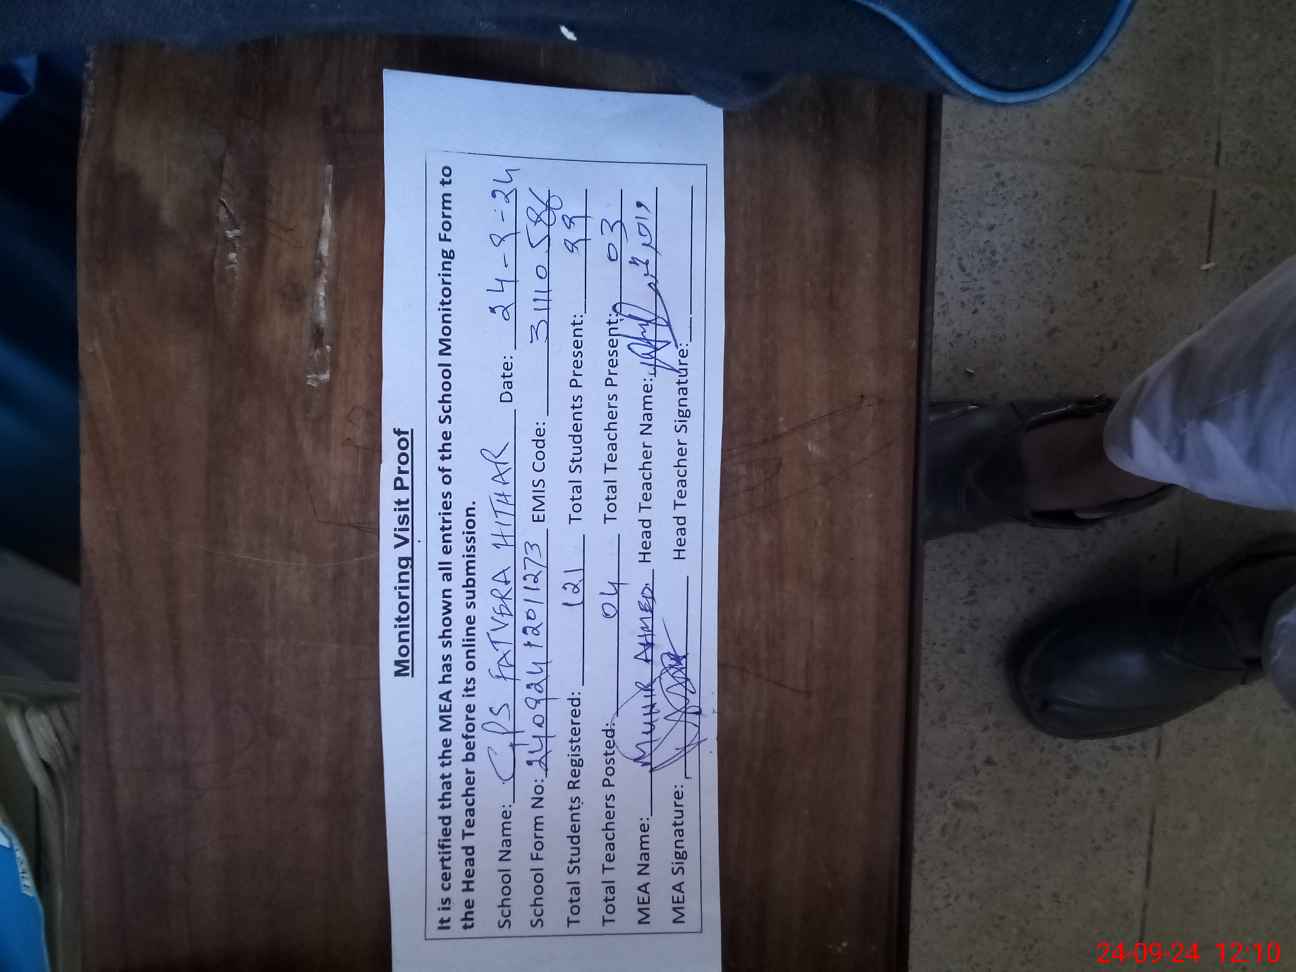 Monitoring Visit Proof
It is certified that the MEA has shown all entries of the School Monitoring Form to
the Head Teacher before its online submission.
School Name: GPS FATVERA HITHAR Date: 24-9-24
School Form No: 24092412011273 EMIS Code: 31110586
Total Students Registered: 121 Total Students Present: 99
Total Teachers Posted: 04 Total Teachers Present: 03
MEA Name: MUNIR AHMED Head Teacher Name:
MEA Signature: Head Teacher Signature:
24-09-24 12:10